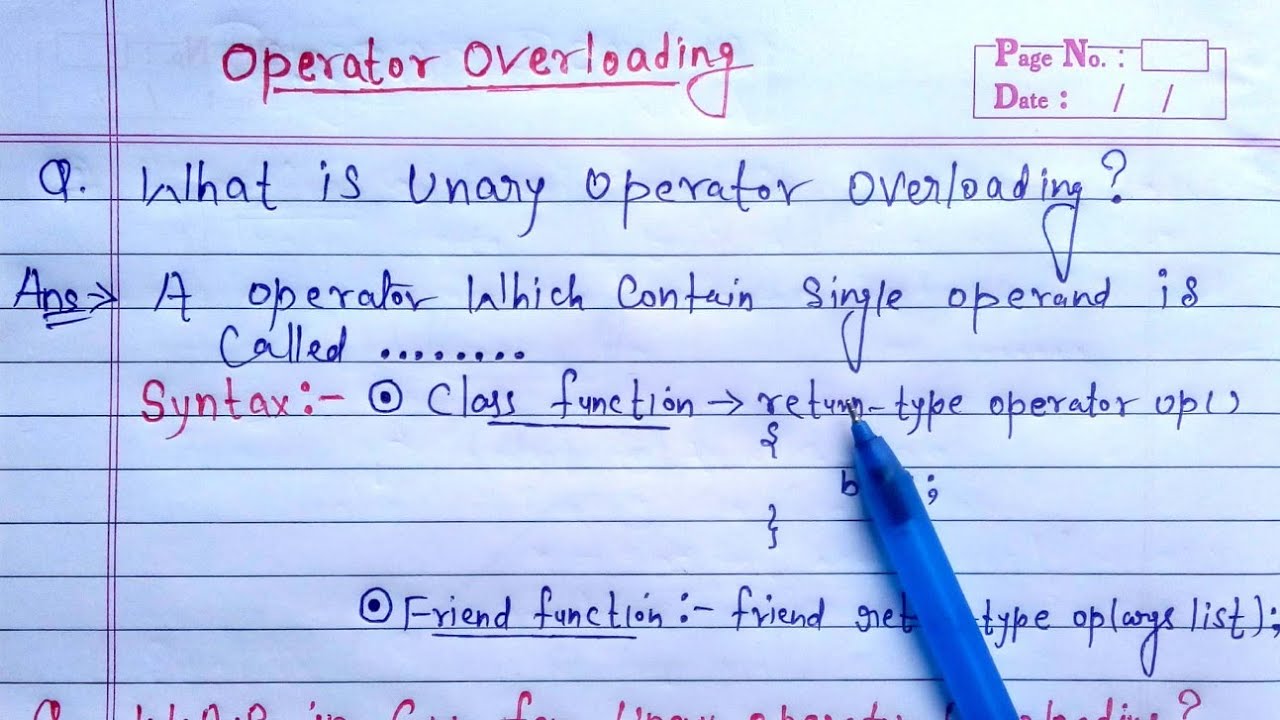 Operator Overloading
Page No. :
Date : / /
Q. What is Unary Operator Overloading?
Ans→ A operator Which Contain Single operand is
Called ........
Syntax:- ⊙ Class function → return-type operator op()
{
;
}
⊙ Friend function :- friend type op(args list);
Q. W.A.P in C++ for Unary operator